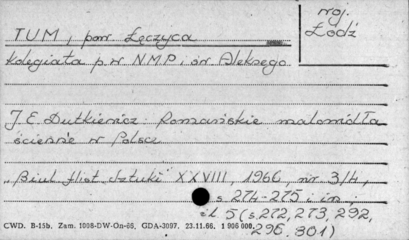 woj.
Łodź
TUM, pow Łęczyca
Kolegiata p.w N.M.P. i św. Aleksego
J.E. Dutkiewicz: Romańskie malowidła
ścienne w Polsce
„Biul. Hist. Sztuki" XXVIII, 1966, nr. 3/4,
s 274-275 i in.,
il. 5 (s. 272, 273, 292,
296. 301)
CWD. B-15b. Zam. 1098-DW-On-66, GDA-3097. 23.11.66. 1 000 000.